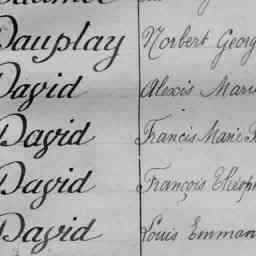 Dauplay Norbert Georg
David Alexis Mari
David Francis Marie
David François Théoph
David Louis Emman